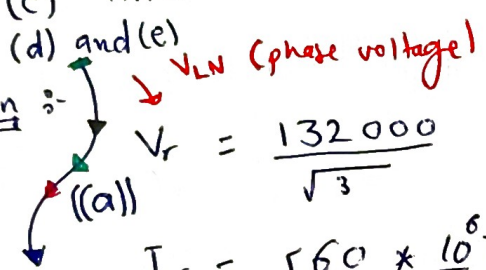 (d) and (e)
V_LN (phase voltage)
n :-
V_r = 132 000 / √3
((a))
560 * 10^6